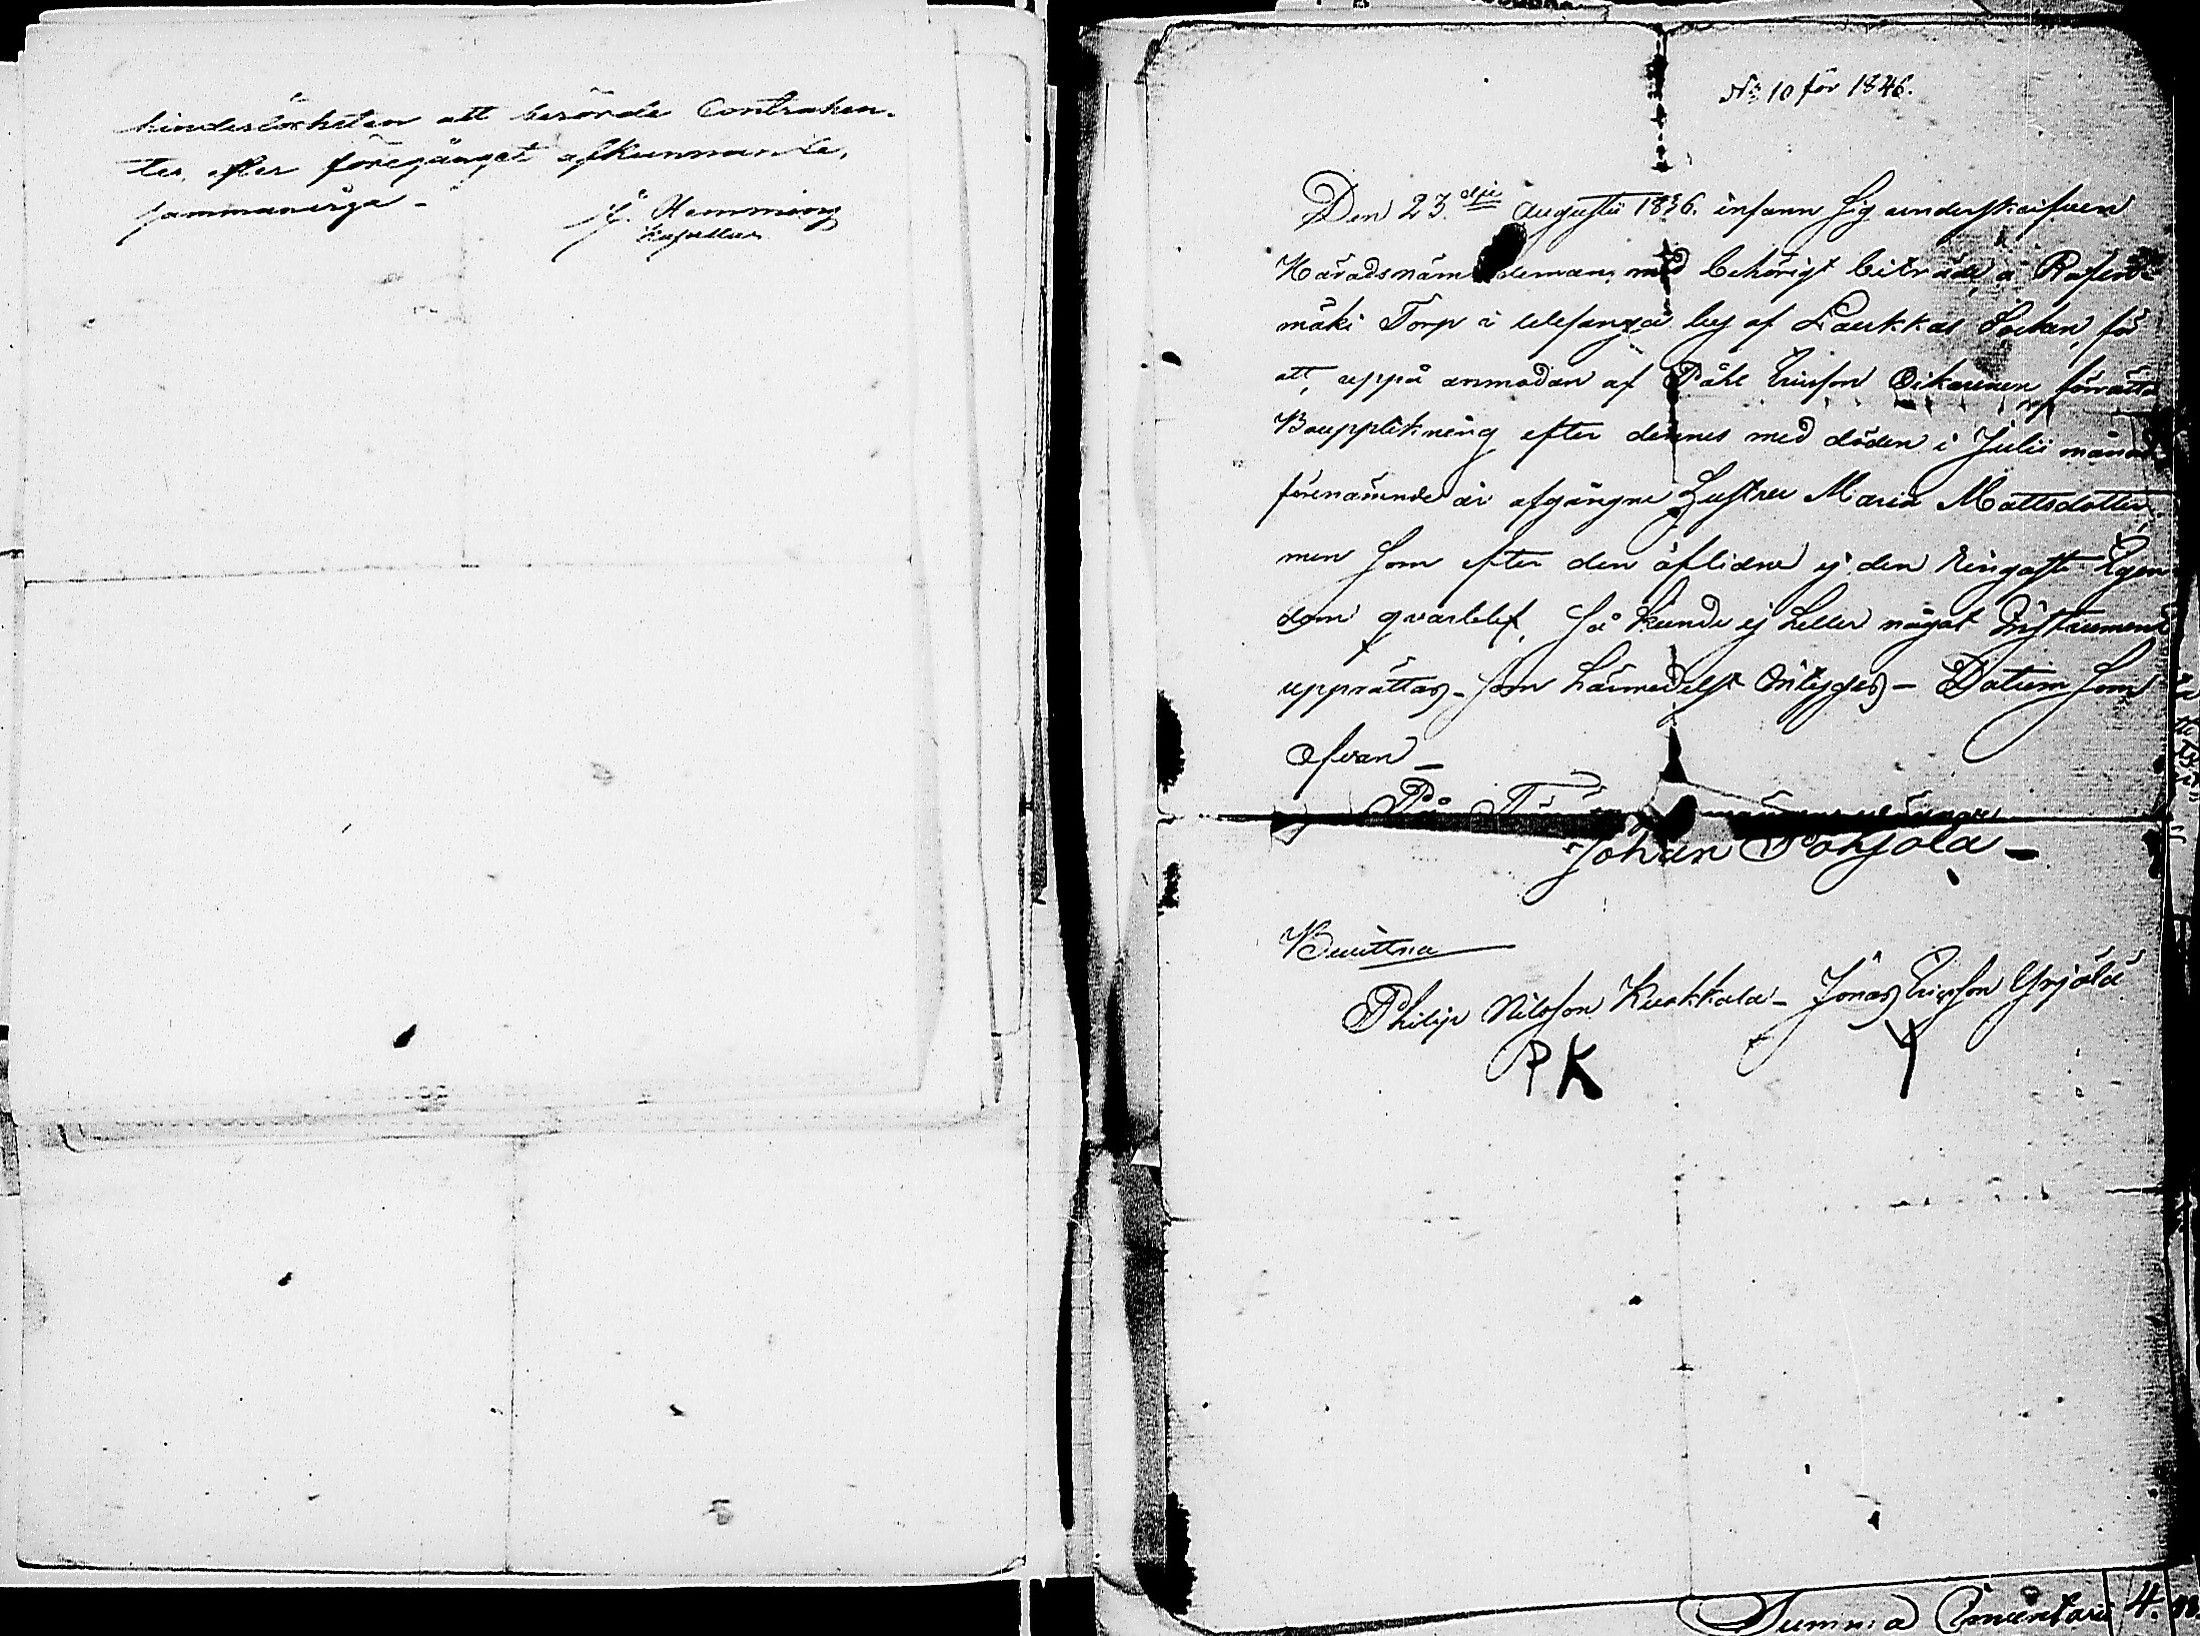 hinderslösheten att berörde Contrahen-
ter, efter föregånget afkunnande,
sammanviga -
J. Hemming
Kapellan
No 10 för 1846.
Den 23.dje Augustii 1836. infann sig underskrifven
Häradsnämndeman, med behörigt biträde, å
mäki Torp i by af Laukkas Sochn, för
att, uppå anmodan af Påhl Ericsson Oikarinen förrätta
Bouppteckning efter dennes med döden i Julii månad
förenämnde år afgångne Hustru Maria Mattsdotter,
men som efter den aflidne ej den ringaste Egen-
dom qvarblef, så kunde ej heller något Instrument
upprättas - som härmedelst intygas - Datum som
ofvan -
På
Johan Pohjola -
Bewittna
Philip Nilsson Kuckkala - Jonas Ericsson Yrjälä
PK Y
Summa Inventarii 4.